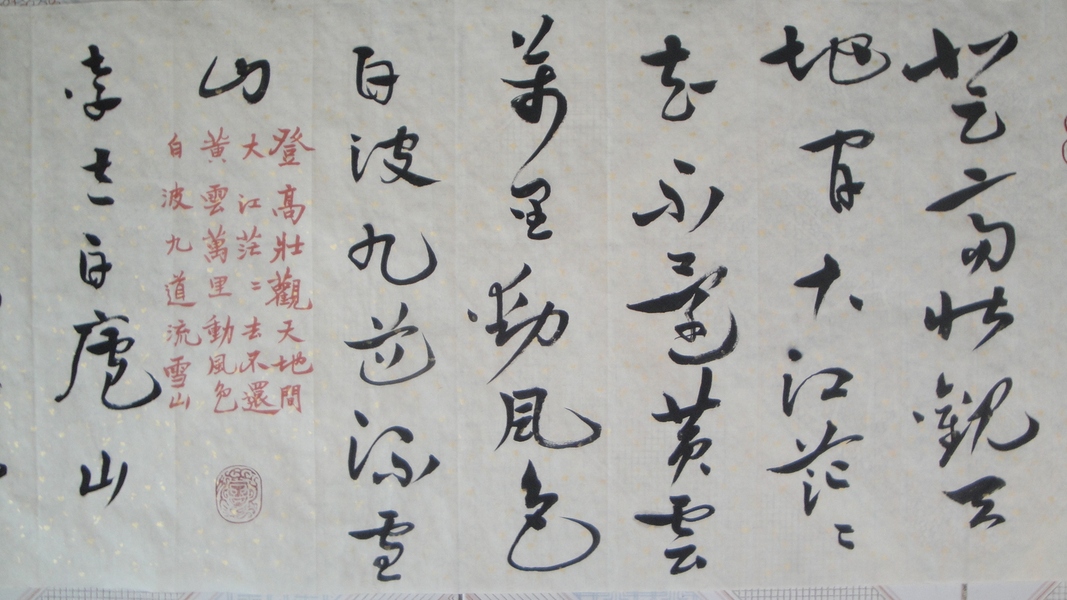 登高壯觀天
地間大江茫〻
去不還黃雲
萬里動風色
白波九道流雪
山
登高壯觀天地間
大江茫〻去不還
黃雲萬里動風色
白波九道流雪山
李太白廬山